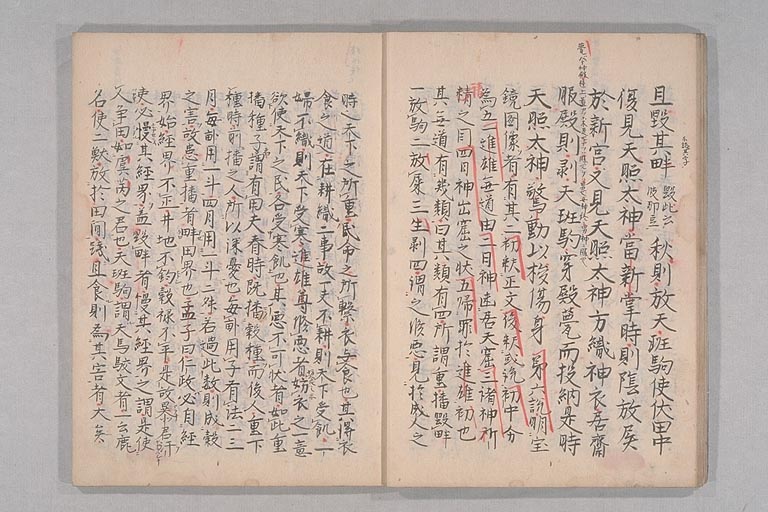 且毀其畔毀此云波那豆秋則放天班駒使伏田中
復見天照太神當新嘗時則陰放屎
於新宮又見天照太神方織神衣居齋
服殿則剥天班駒穿殿甍而投納是時
天照太神驚動以梭傷身第六説明宝
鏡図像者有其二初釈正文後釈或説初中分
為五一進雄無道由二日神幽居天窟三諸神所
精之四日神出窟之状五帰罪於進雄初也
其無道有幾類曰其類有四所謂重播毀畔
一放駒二放屎三生剥四謂之後悪見於成人之
時之天下之所重民命之所繋衣与食也其得衣
食之道在耕織二事故一夫不耕則天下受飢一
婦不織則天下受寒進雄尊後悪者妨衣之一意
欲使天下之民各受寒飢也其悪不可状者如此重
播種子謂有田夫春時既播穀種而後人重下
種時前播之人所以深憂也毎畝用子有法二三
月毎畝用一斗四月用一斗二升若過此数則成穀
之害故患重播者畔田界也孟子曰仁政必自経
界始経界不正井地不鈞穀禄不平是故暴君汙
吏必慢其経界孟毀畔者慢其経界之謂是使
人争田如虞芮之君也天班駒謂天馬駮文者一云鹿
名使二獣放於田間踐且食則為其害者大矣